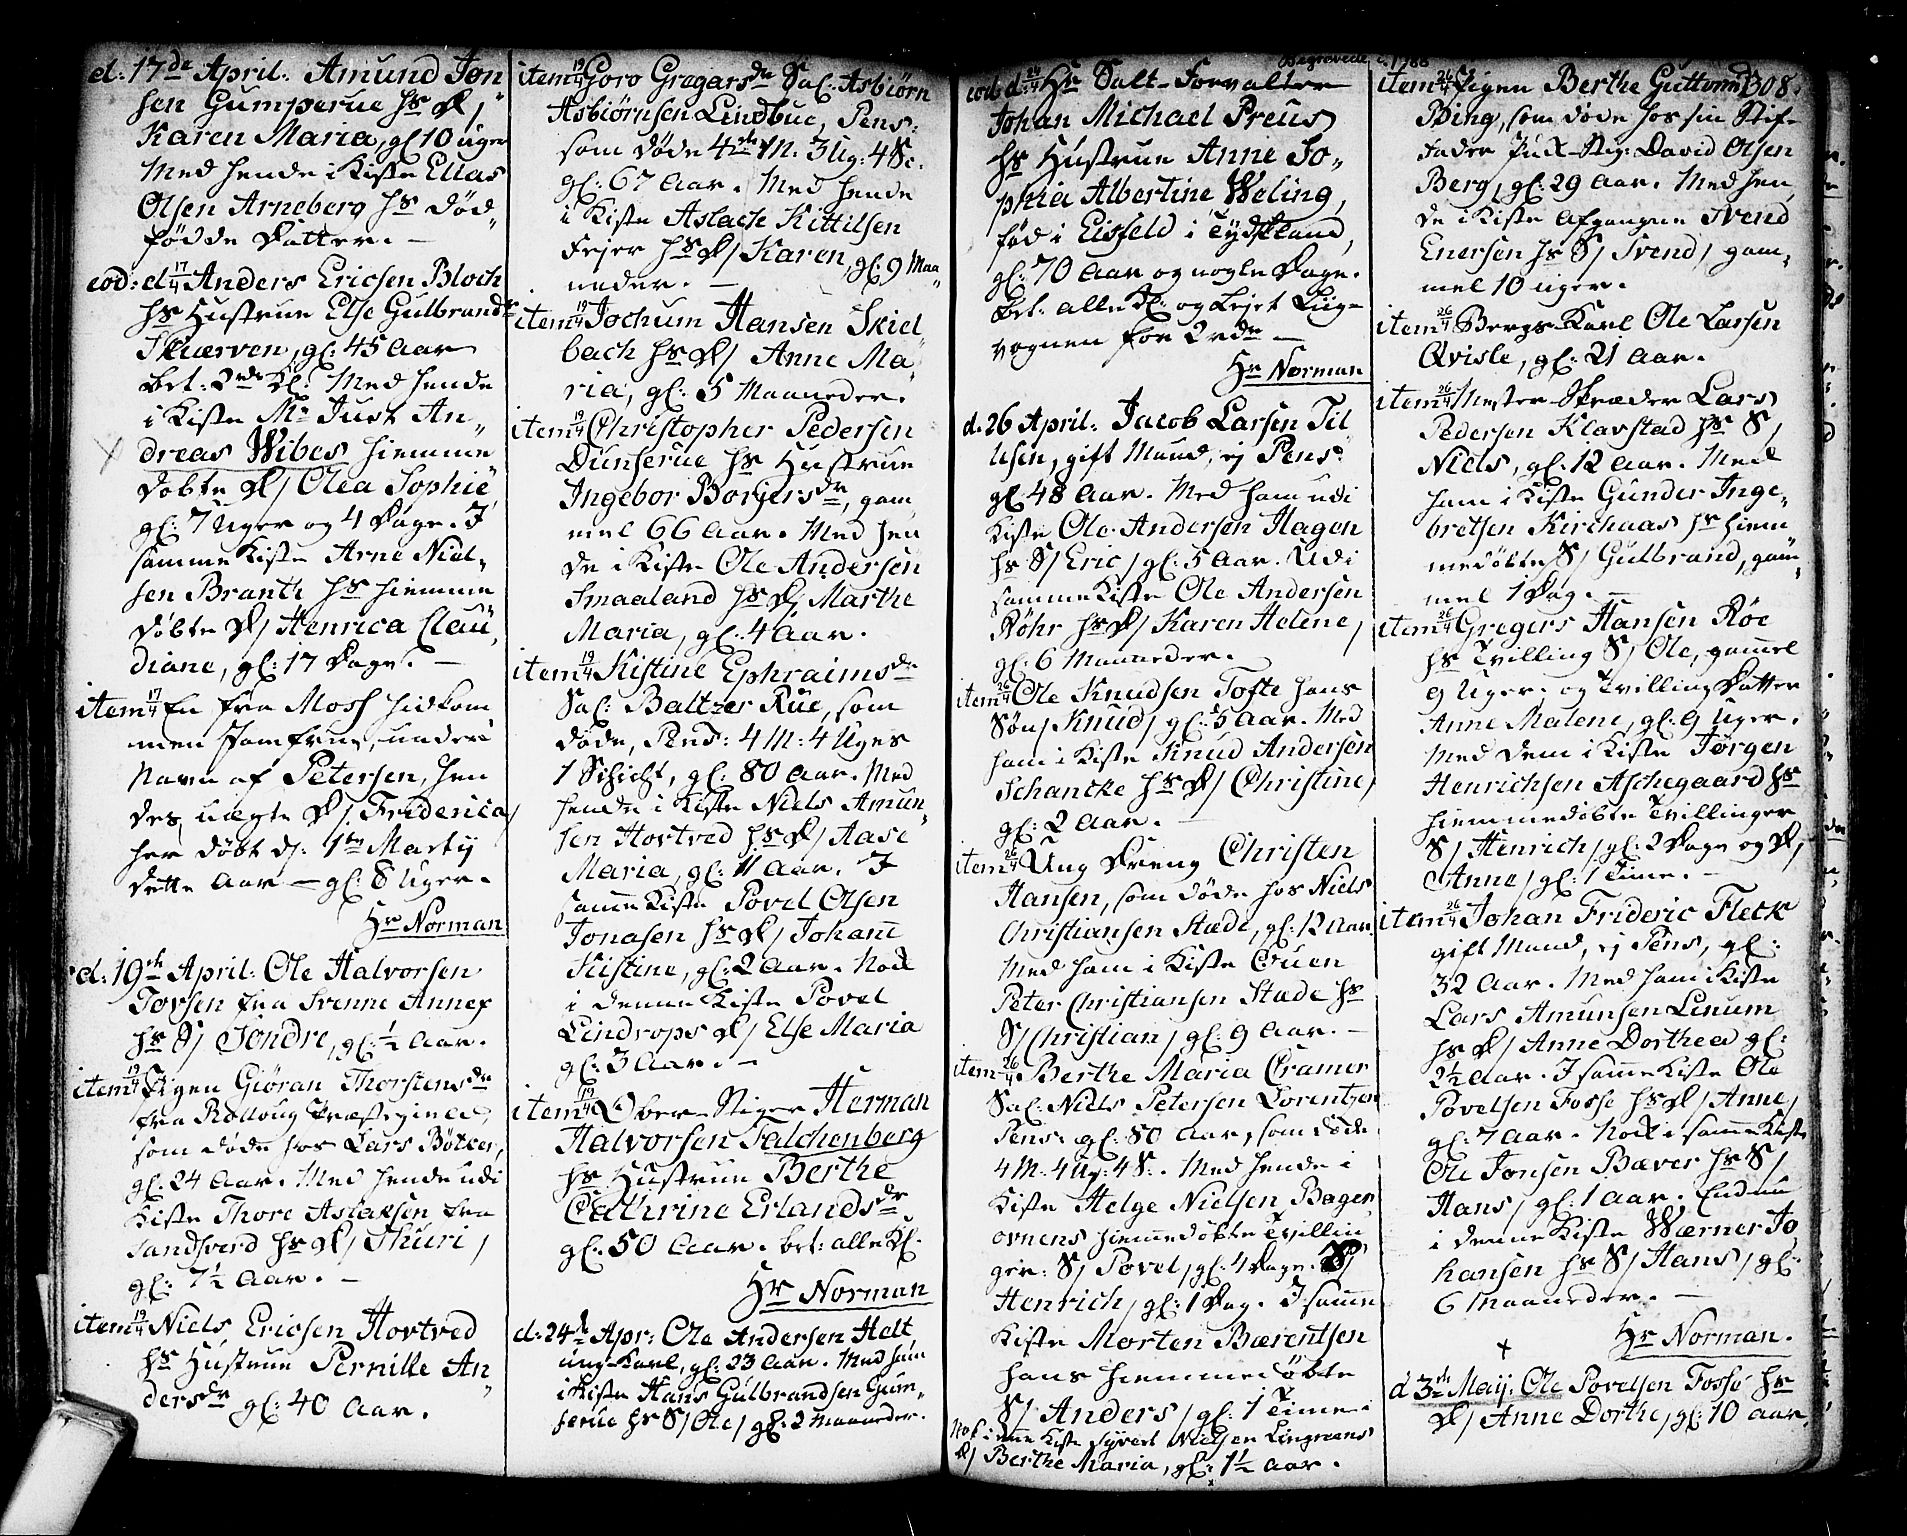 d: 17de April: Amund Jon
sen Gumperue hs D/
Karen Maria, gl 10 uger
Med hende i Kiste Ellas
Olsen Arneberg hs død„
fødde Datter. —
eod: d 17/4 Anders Ericsen Bloch
hs Hustrue Else Gulbrandsdr
Skuerven, gl: 45 Aar
bet: 2de Kl: Med hende
i Kiste Mr Just An„
dreas Wibes hiemme
døbte D/ Olea Sophie
gl: 7 Uger og 4 Dage. I
samme Kiste Arne Niel„
sen Branth hs hiemme
døbte D/ Henrica Clau„
diane, gl: 17 Dage. —
item 17/4 En fra Moss hidkom
men Jomfrue, under
Navn af Petersen, hen
des uægte D/ Friderica/
her døbt d: 1te Martij
dette Aar — gl: 8 Uger.
Hr Norman
d: 19de April: Ole Halvorsen
Torsen fra Svenne Annex
hs S/ Søndre, gl: ½ Aar.
item 19/4 Pigen Giøran Thorstensdr
fra Rolloug Præstegield,
som døde hos Lars Böttcer,
gl: 24 Aar. Med hende udi
Kiste Thore Aslaksen fra
Sandsverd hs D/ Thuri/
gl: 7½ Aar. —
item 19/4 Niels Ericsen Hortved
hs Hustrue Pernille An„
dersdr gl: 40 Aar.
item 19/4 Goro Gregarsdr Sal: Asbiørn
Asbiørnsen Lindbue, Pens:
som døde 4de M: 3 Ug: 4 Sc.
gl: 67 Aar. Med hende
i Kiste Aslach Kittilsen
Fejer hs D/ Karen, gl: 9 Maa„
neder. —
item 19/4 Jochum Hansen Skiel
bach hs D/ Anne Ma„
ria, gl: 5 Maaneder.
item 19/4 Christopher Pedersen
Dunserue hs Hustrue
Ingebor Borgersdr, gam
mel 66 Aar. Med hen
de i Kiste Ole Andersen
Smaaland hs D/ Marthe
Maria, gl: 4 Aar.
item 19/4 Kistine Ephraimsdr
Sal: Baltzer Rue, som
døde, Pens: 4 M: 4 Uges
1 Schicht, gl: 80 Aar. Med
hende i Kiste Niels Amun„
sen Hortved hs D/ Aase
Maria, gl: 11 Aar. I
samme Kiste Povel Olsen
Jonasen hs D/ Johanne
Kistine, gl: 2 Aar. Nok
i denne Kiste Povel
Lindrops D/ Else Maria
gl: 3 Aar. —
item 19/4 Ober-Stiger Herman
Halvorsen Falchenberg
hs Hustrue Berthe
Cathrine Erlandsdr
gl: 50 Aar. bet: alle Kl.
Hr Norman
d: 24de Apr: Ole Andersen Helt,
ung Karl, gl: 23 Aar. Med ham
i Kiste Hans Gulbrandsen Gum„
serue hs S/ Ole/ gl: 2 Maaneder.
Begravede 1788
eod d: 24/4 Hr Salt-Forvalter
Johan Michael Preus
hs Hustrue Anne So„
phia Albertine Weling,
fød i Eisfeld i Tydskland
gl: 70 Aar og nogle Dage.
bet: alle Kl: og Lejet Liig-
vognen for 2 rdr —
Hr Norman
d: 26 April: Jacob Larsen Til
lesen, gift Mand, ej Pens:
gl: 48 Aar. Med ham udi
Kiste Ole Andersen Hagen
hs S/ Eric/ gl: 5 Aar. Udi
samme Kiste Ole Andersen
Røhr hs D/ Karen Helene/
gl: 6 Maaneder.
item 26/4 Ole Knudsen Tofte hans
Søn/ Knud/ gl: 5 Aar. Med
ham i Kiste Knud Andersen
Schancke hs D/ Christine/
gl: 2 Aar. —
item 26/4 Ung Dreng Christen
Hansen, som døde hos Niels
Christiansen Stade, gl: 12 Aar.
Med ham i Kiste Ouen
Peter Christiansen Stade hs
S/ Christian/ gl: 9 Aar. —
item 26/4 Berthe Maria Cramer
Sal: Niels Petersen Lorentzen
Pens: gl: 80 Aar, som døde
4 M: 4 Ug: 4 S:. Med hende i
Kiste Helge Nielsen Bøger
ovnens hiemmedøbte Tvillin
ger: S/ Povel, gl: 4 Dage. S/
Henrich, gl: 1 Dag. I samme
Kiste Morten Bærentsen
hans hiemmedøbte
S/ Anders/ gl: 1 Time.
Nok i denne Kiste Syvert Nielsen Lingreens
D/ Berthe Maria, gl: 1½ Aar.
308.
item 26/4 Pigen Berthe Guttormsd
Bing, som døde hos sin Stif-
fader Puk-Stig: David Olsen
Berg, gl: 29 Aar. Med hen
de i Kiste Afgangne Svend
Enersen hs S/ Svend/ gam„
mel 10 uger.
item 26/4 Bergs-Karl Ole Larsen
Qvisle, gl: 21 Aar.
item 26/4 Mester-Skræder Lars
Pedersen Klavstad hs S/
Niels, gl: 12 Aar. Med
ham i Kiste Gunder Inge„
bretsen Kirchaas hs hiem
medøbte S/ Gulbrand, gam„
mel 1 Dag. —
item 26/4 Gregers Hansen Røe
hs Tvilling S/ Ole, gammel
9 Uger. og Tvilling Datter
Anne Malene, gl: 9 Uger.
Med dem i Kiste Jørgen
Henrichsen Aschegaard hs
hiemmedøbte Tvillinger
S/ Henrich/ gl: 2 Dage og D/
Anne/ gl: 1 Time. —
item 26/4 Johan Frideric Fleck
gift Mand, ej Pens, gl:
32 Aar. Med ham i Kiste
Lars Amunsen Linum
hs D/ Anne Dorthea gl:
2½ Aar. I samme Kiste Ole
Povelsen Fosse hs D/ Anne/
gl: 7 Aar. Nok i samme Kiste
Ole Jonsen Bæver hs S/
Hans/ gl: 1 Aar. Endnu
i denne Kiste Wærner Jo
hansen hs S/ Hans/ gl:
6 Maaneder. —
Hr Norman.
d 3de Maij: Ole Povelsen Fosse hs
D/ Anne Dorthe/ gl: 10 Aar.